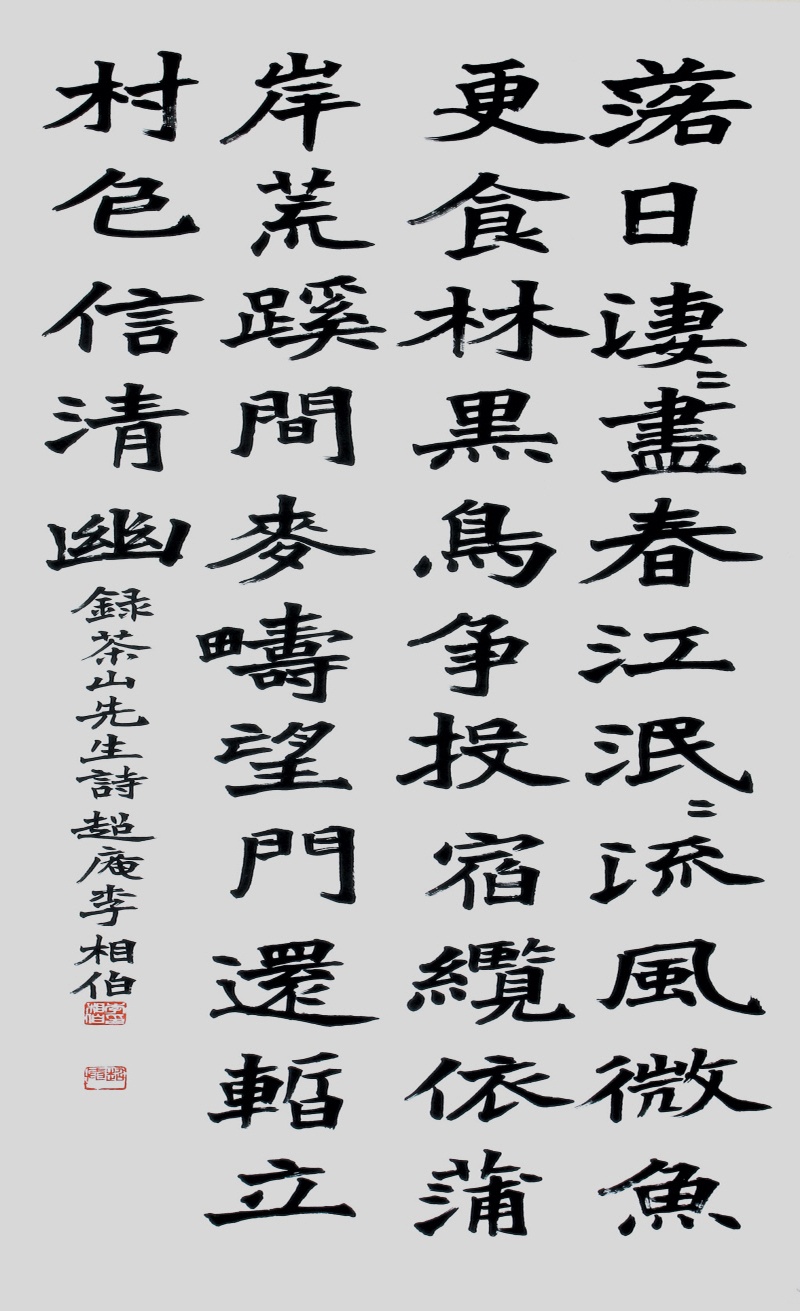 落日淒〻盡春江泯〻流風微魚
更食林黒鳥争投宿纜依蒲
岸荒蹊間麥疇望門還暫立
村色信清幽
録茶山先生詩超庵李相伯